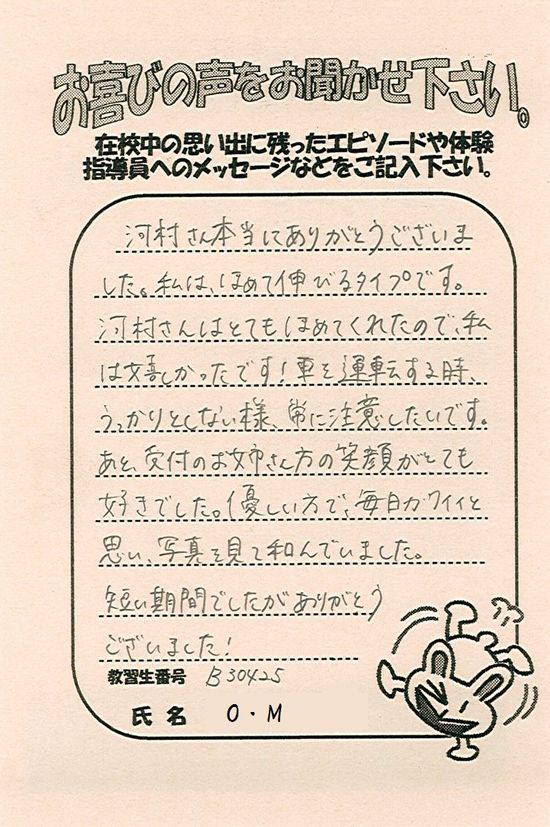 お喜びの声をお聞かせ下さい。
在校中の思い出に残ったエピソードや体験
指導員へのメッセージなどをご記入下さい。
河村さん本当にありがとうございま
した。私は、ほめて伸びるタイプです。
河村さんはとてもほめてくれたので、私
は嬉しかったです！車を運転する時、
うっかりとしない様、常に注意したいです。
あと、受付のお姉さん方の笑顔がとても
好きでした。優しい方で、毎日カワイイと
思い、写真を見て和んでいました。
短い期間でしたがありがとう
ございました！
教習生番号 B30425
氏名 O・M